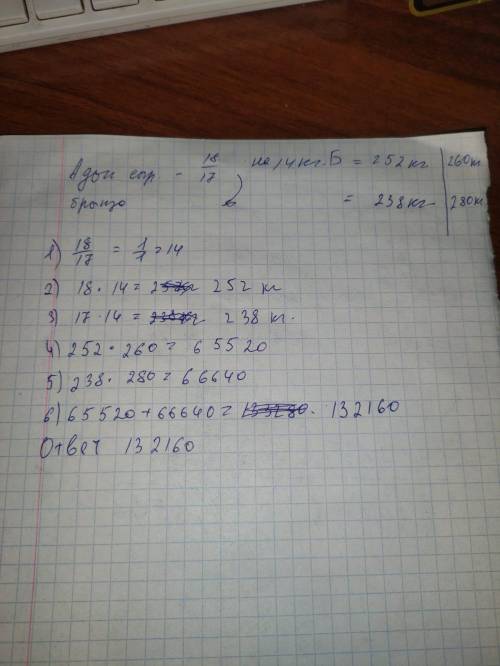 Адыг сыр - 18/17 на 14 кг. Б = 252 кг. 260 кг
брынза = 238 кг 280 кг
1) 18/17 = 1/1 = 14
2) 18 · 14 = 252 кг
3) 17 · 14 = 238 кг.
4) 252 · 260 = 65520
5) 238 · 280 = 66640
6) 65520 + 66640 = 132160
Ответ 132160